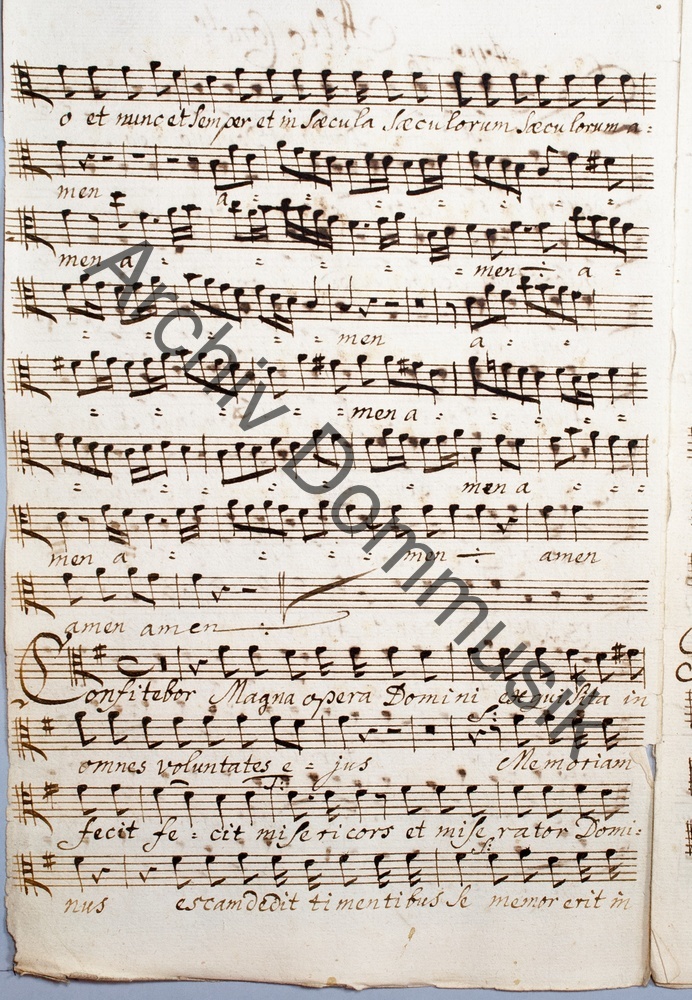 o et nunc et semper et in sæcula sæculorum sæculorum a=
men a = = = =
men a = = = = men ÷ a =
= = = = men a = =
= = = = = men a = = =
= = = = = = men a =
men a = = = = men ÷ amen
amen amen ÷
Confitebor Magna opera Domini exquisita in
omnes voluntates e = jus Memoriam
fecit fe = cit misericors et miserator Domi=
nus escam dedit timentibus se memor erit in
Archiv Dommusik